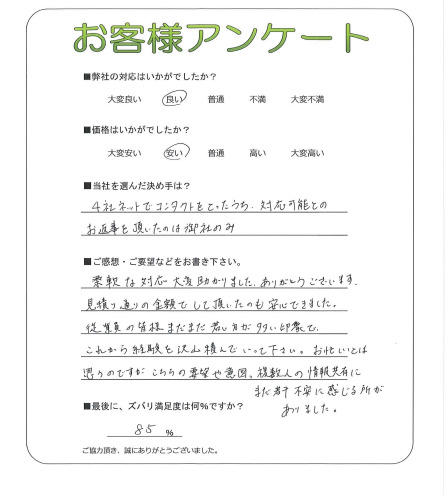 お客様アンケート
■弊社の対応はいかがでしたか？
大変良い 良い 普通 不満 大変不満
■価格はいかがでしたか？
大変安い 安い 普通 高い 大変高い
■当社を選んだ決め手は？
4社ネットでコンタクトをとったうち、対応可能との
お返事を頂いたのは御社のみ
■ご感想・ご要望などをお書き下さい。
柔軟な対応大変助かりました。ありがとうございます。
見積り通りの金額でして頂いたのも安心できました。
従業員の皆様まだまだ若い方が多い印象で、
これから経験を沢山積んでいって下さい。お忙しいとは
思うのですがこちらの要望や意図、複数人の情報共有に
まだ若干不安に感じる所が
ありました。
■最後に、ズバリ満足度は何%ですか？
85 %
ご協力頂き、誠にありがとうございました。